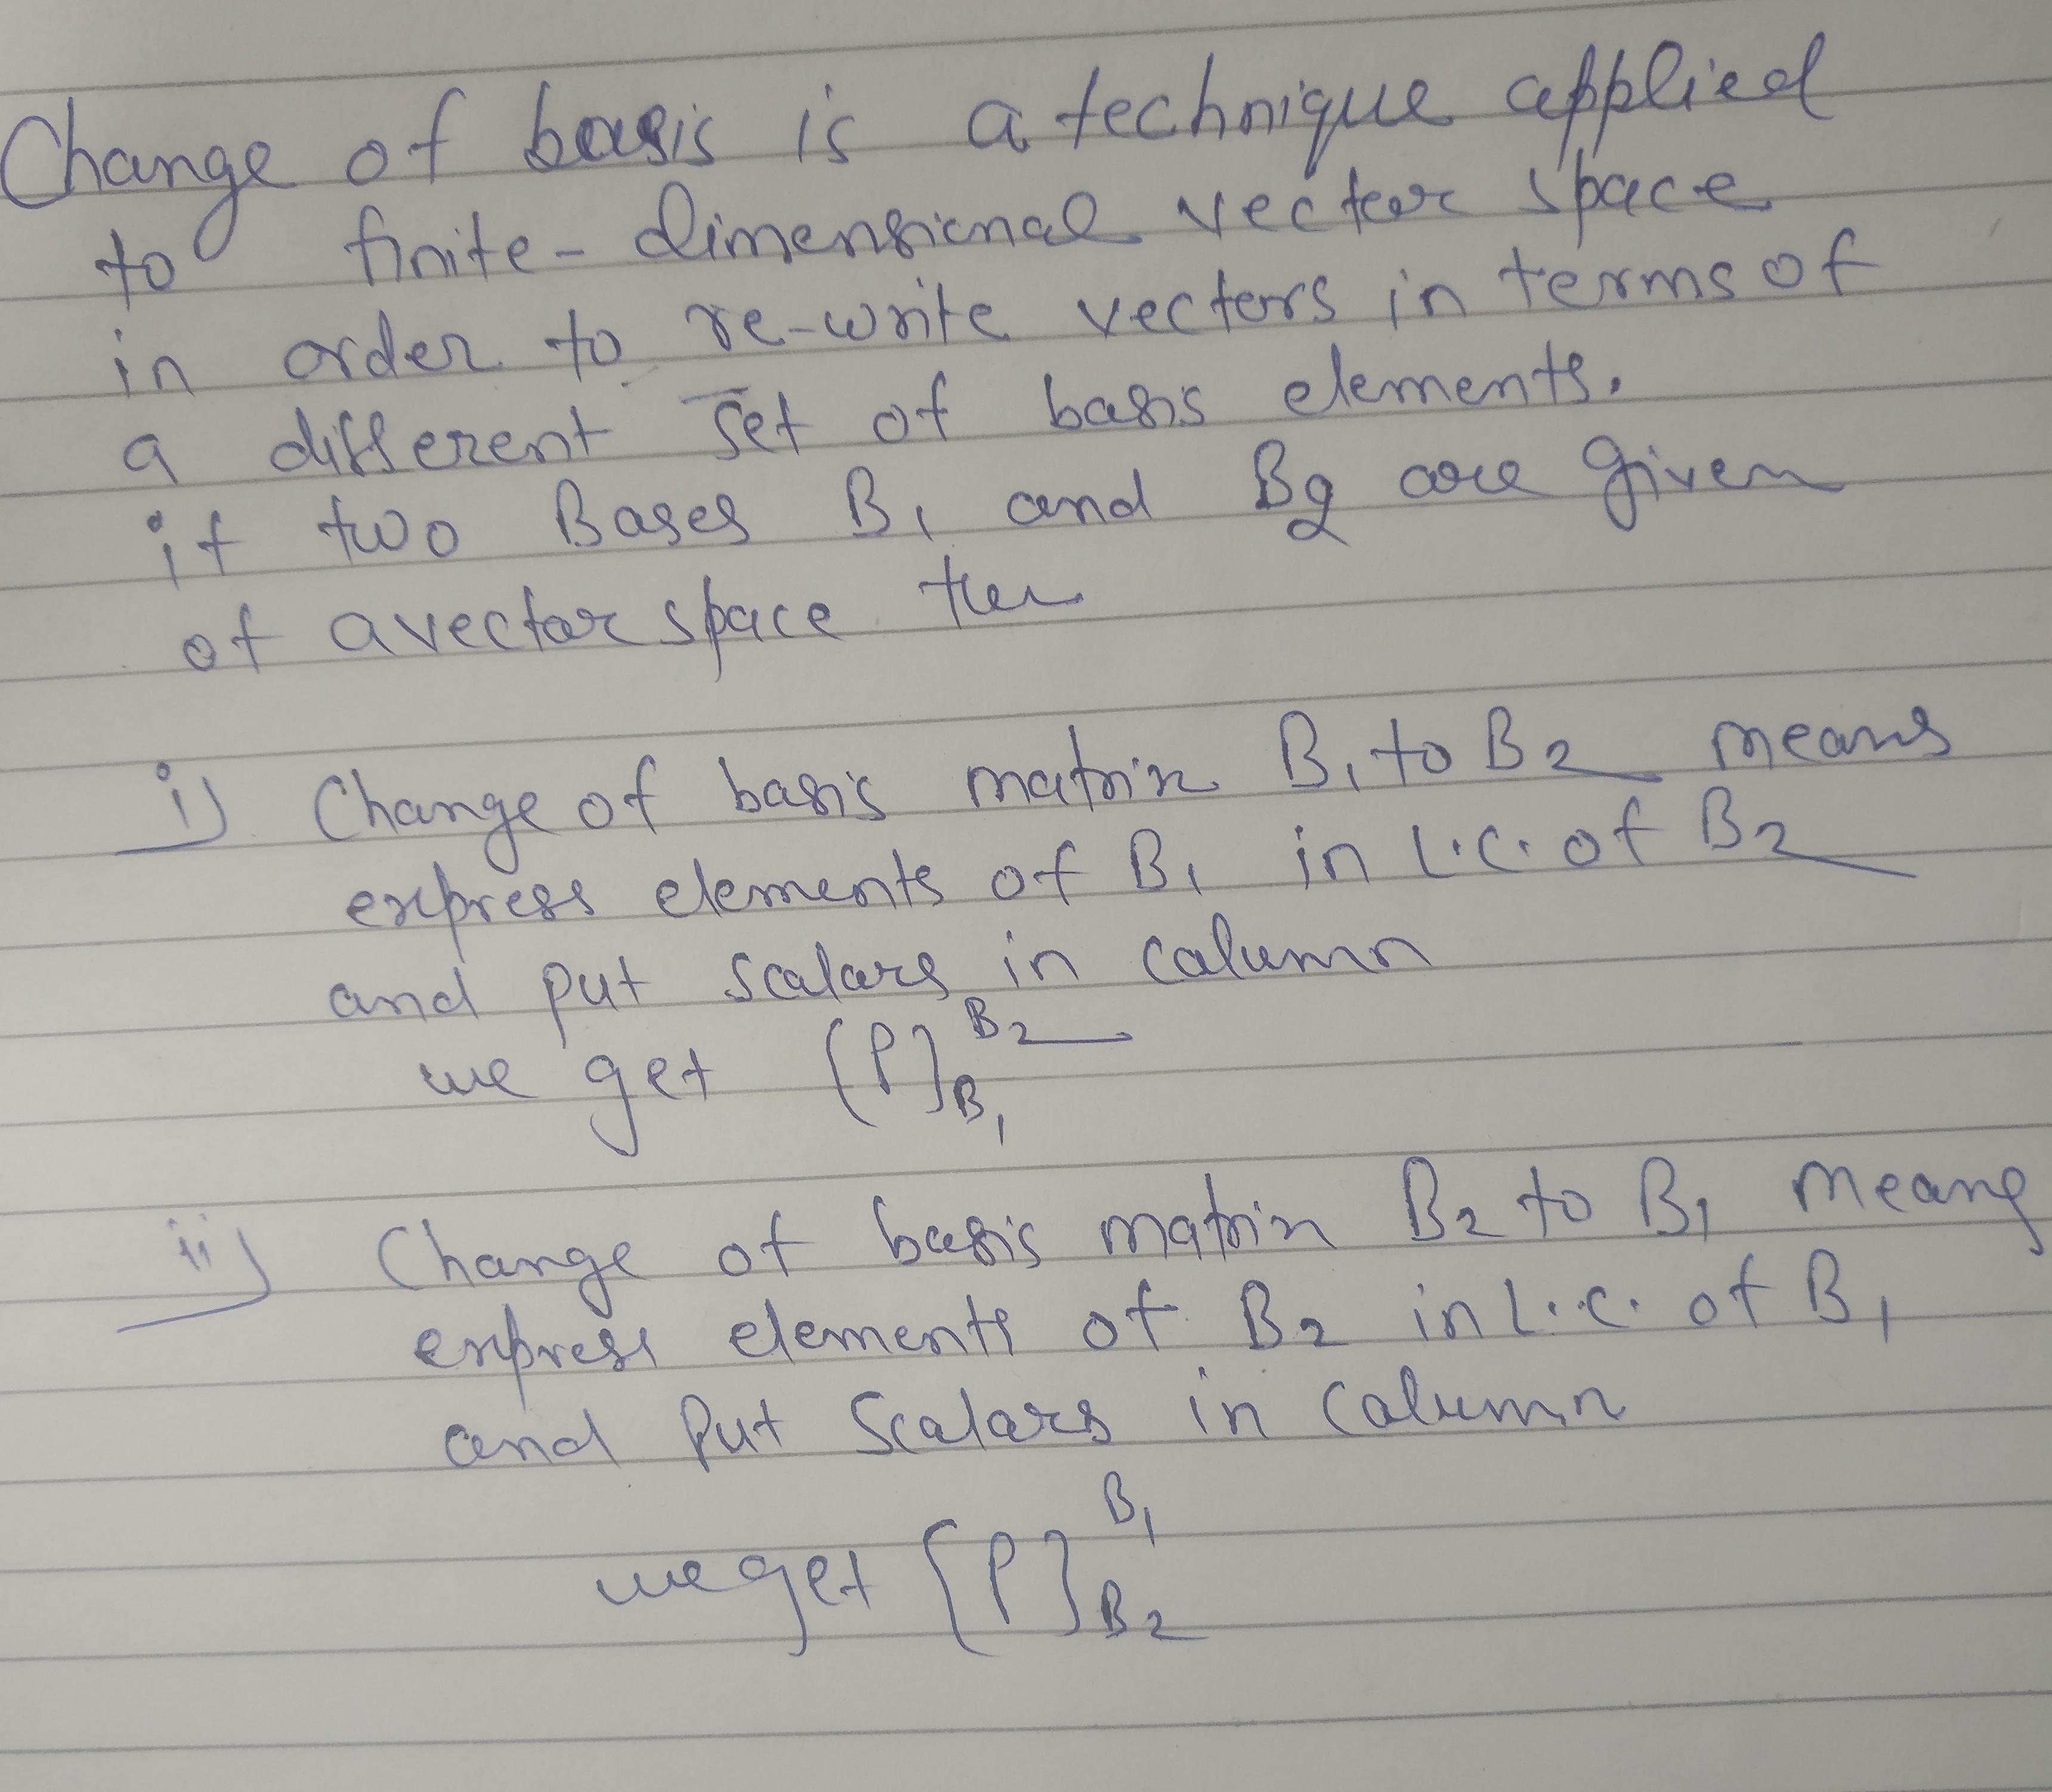 Change of basis is a technique applied
to finite-dimensional vector space
in order to re-write vectors in terms of
a different set of basis elements.
if two Bases B1 and B2 are given
of a vector space then
i) Change of basis matrix B1 to B2 means
express elements of B1 in L.C. of B2
and put scalars in column
we get [P]B2B1
ii) Change of basis matrix B2 to B1 means
express elements of B2 in L.C. of B1
and Put Scalars in Column
we get [P]B1B2